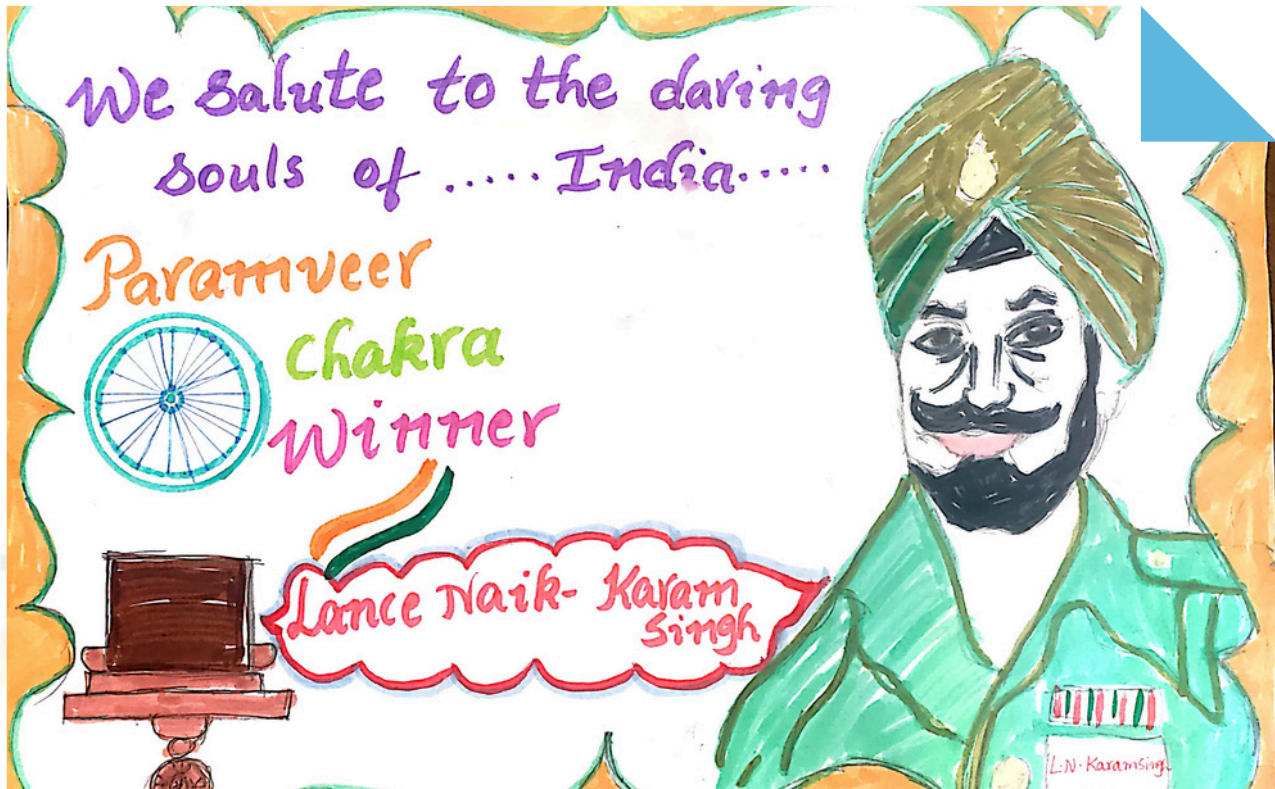 We salute to the daring
souls of ..... India.....
Paramveer
Chakra
Winner
Lance Naik- Karam
Singh
L.N. Karamsingh